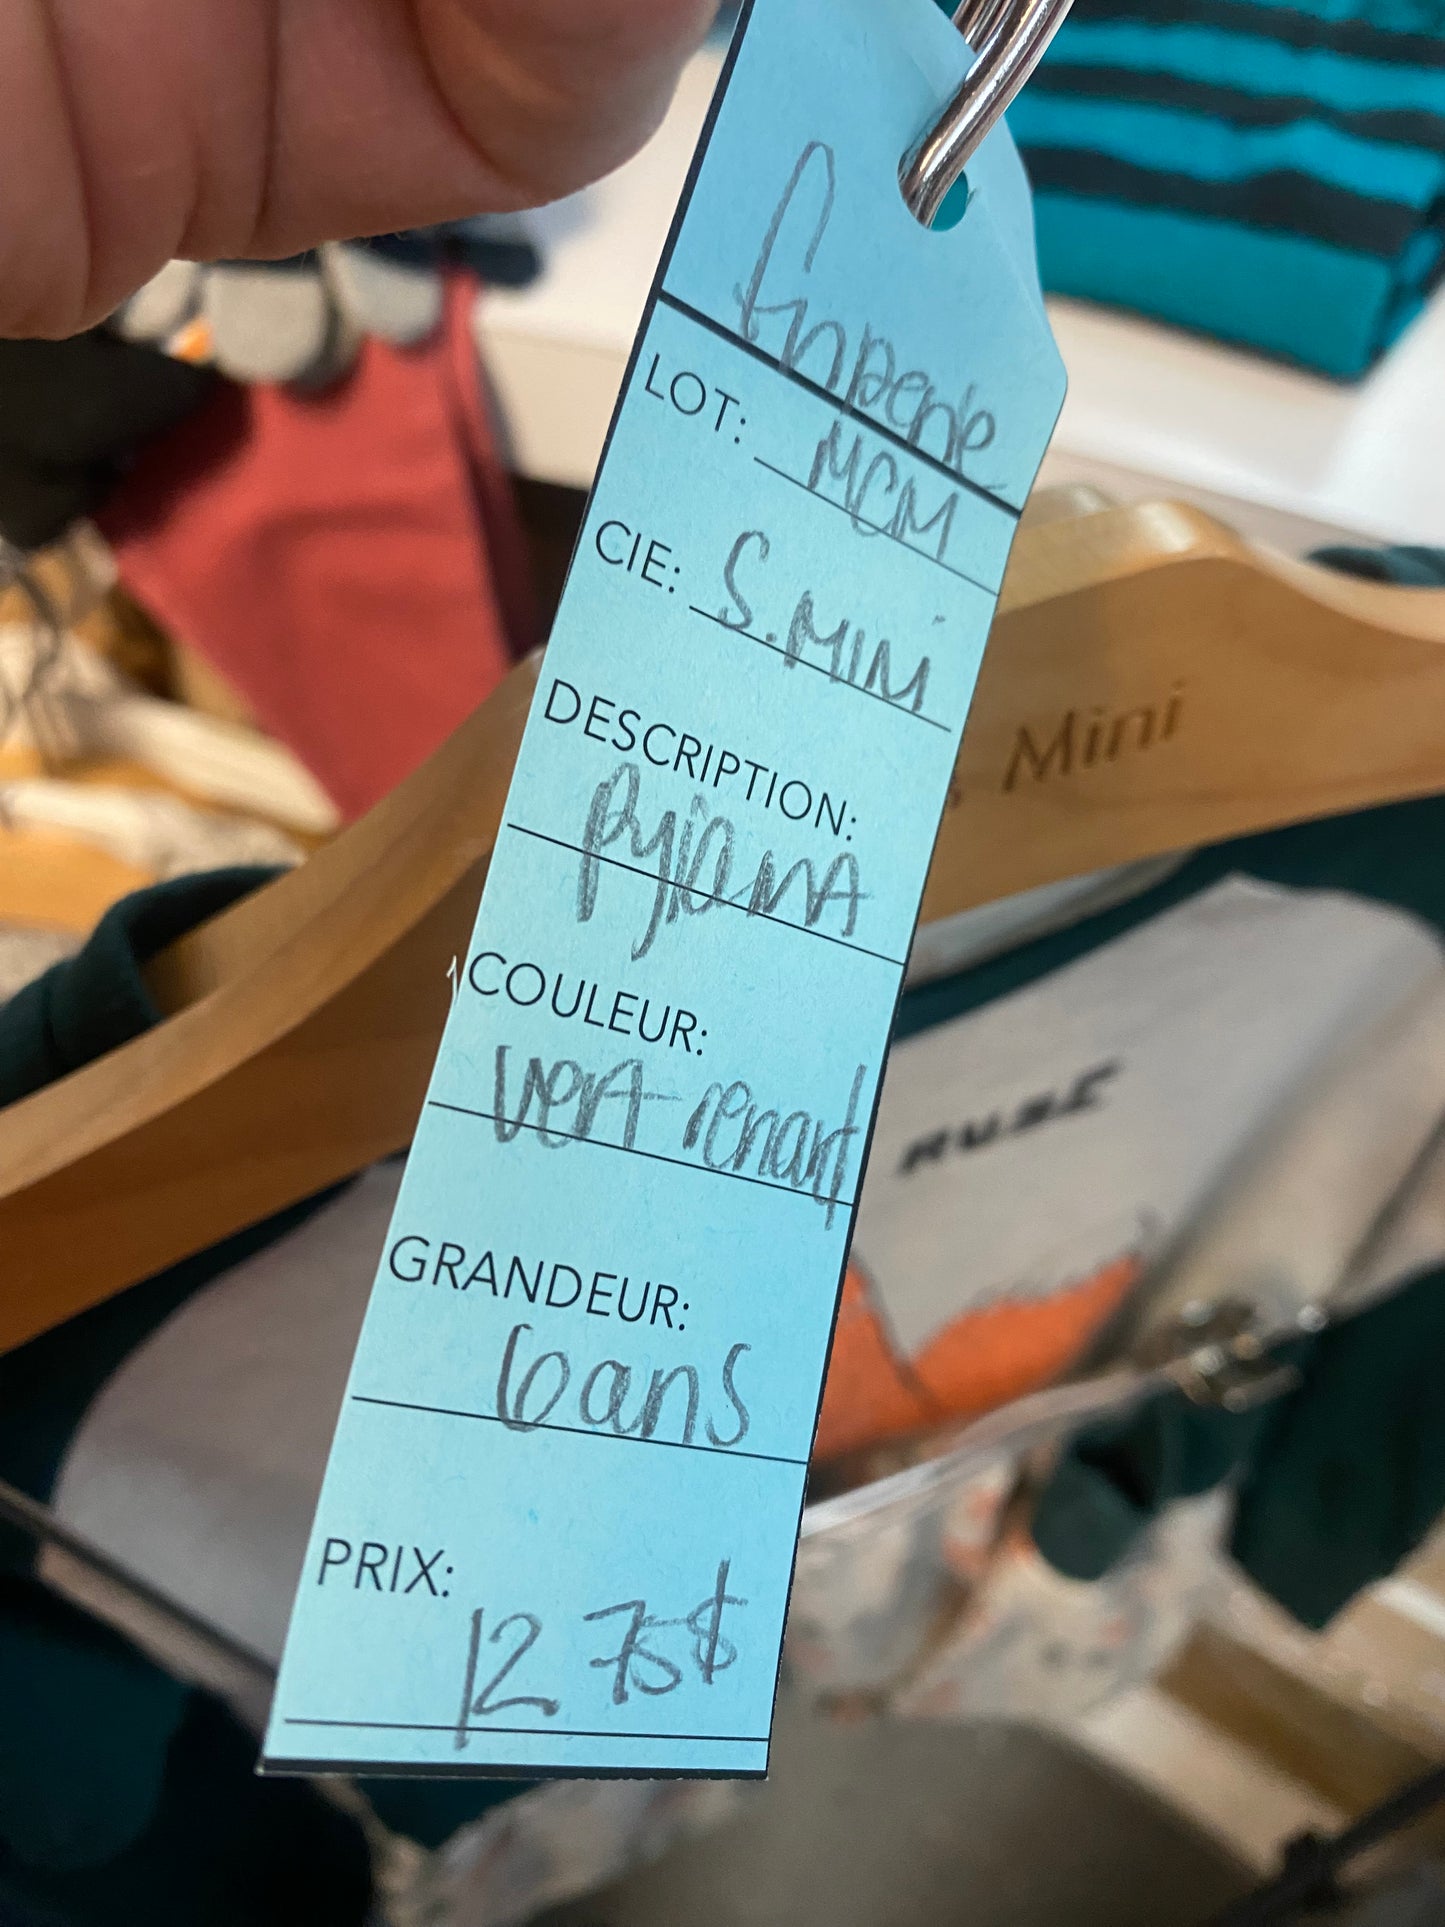 Friperie
LOT: MCM
CIE: S.MINI
DESCRIPTION:
Pyjama
COULEUR:
vert renard
GRANDEUR:
6ans
PRIX:
12 75$
Mini
RUSÉ